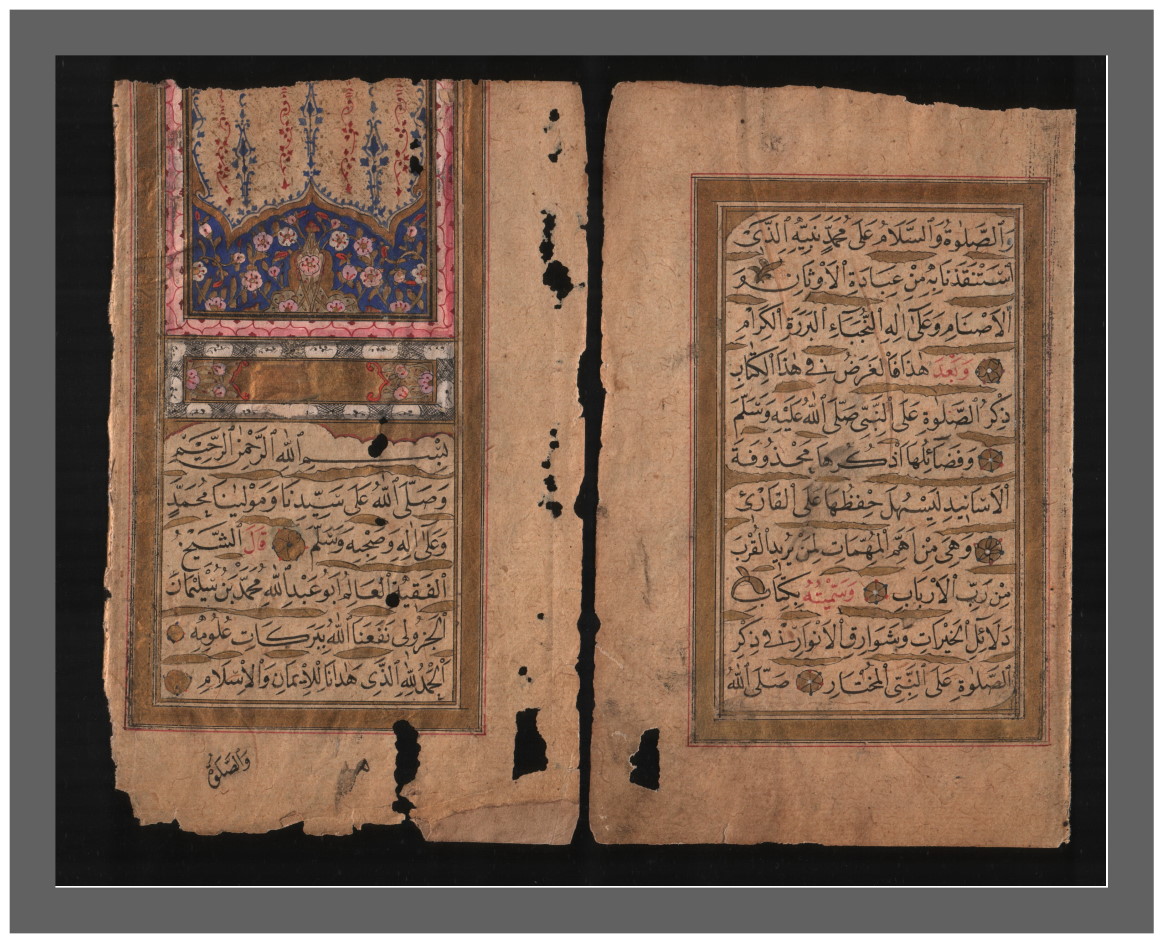 بِسْمِ ٱللهِ ٱلرَّحْمٰنِ ٱلرَّحِيمِ
وَصَلَّى ٱللهُ عَلَى سَيِّدِنَا وَمَوْلٰينَا مُحَمَّدٍ
وَعَلَى اٰلِهِ وَصَحْبِهِ وَسَلَّمَ قَالَ ٱلشَّيْخُ
ٱلْفَقِيهُ ٱلْعَالِمُ اَبُو عَبْدِ ٱللهِ مُحَمَّدُ بْنُ سُلَيْمَانَ
ٱلْجَزُولِى نَفَعَنَا ٱللهُ بِبَرَكَاتِ عُلُومِهِ
اَلْحَمْدُ لِلّٰهِ ٱلَّذِى هَدَانَا لِلْاِيمَانِ وَٱلْاِسْلَامِ
وَٱلصَّلٰوةُ
وَٱلصَّلٰوةُ وَٱلسَّلَامُ عَلَى مُحَمَّدٍ نَبِيِّهِ ٱلَّذِى
ٱسْتَنْقَذَنَا بِهِ مِنْ عِبَادَةِ ٱلْاَوْثَانِ وَ
ٱلْاَصْنَامِ وَعَلَى اٰلِهِ ٱلنُّجَبَاءِ ٱلْبَرَرَةِ ٱلْكِرَامِ
وَبَعْدَ هٰذَا فَالْغَرَضُ فِى هٰذَا ٱلْكِتَابِ
ذِكْرُ ٱلصَّلٰوةِ عَلَى ٱلنَّبِىِّ صَلَّى ٱللهُ عَلَيْهِ وَسَلَّمَ
وَفَضَائِلُهَا اَذْكُرُهَا مَحْذُوفَةَ
ٱلْاَسَانِيدِ لِيَسْهُلَ حِفْظُهَا عَلَى ٱلْقَارِئِ
وَهِىَ مِنْ اَهَمِّ ٱلْمُهِمَّاتِ لِمَنْ يُرِيدُ ٱلْقُرْبَ
مِنْ رَبِّ ٱلْاَرْبَابِ وَسَمَّيْتُهُ بِكِتَابِ
دَلَائِلِ ٱلْخَيْرَاتِ وَشَوَارِقِ ٱلْاَنْوَارِ فِى ذِكْرِ
ٱلصَّلٰوةِ عَلَى ٱلنَّبِىِّ ٱلْمُخْتَارِ صَلَّى ٱللهُ